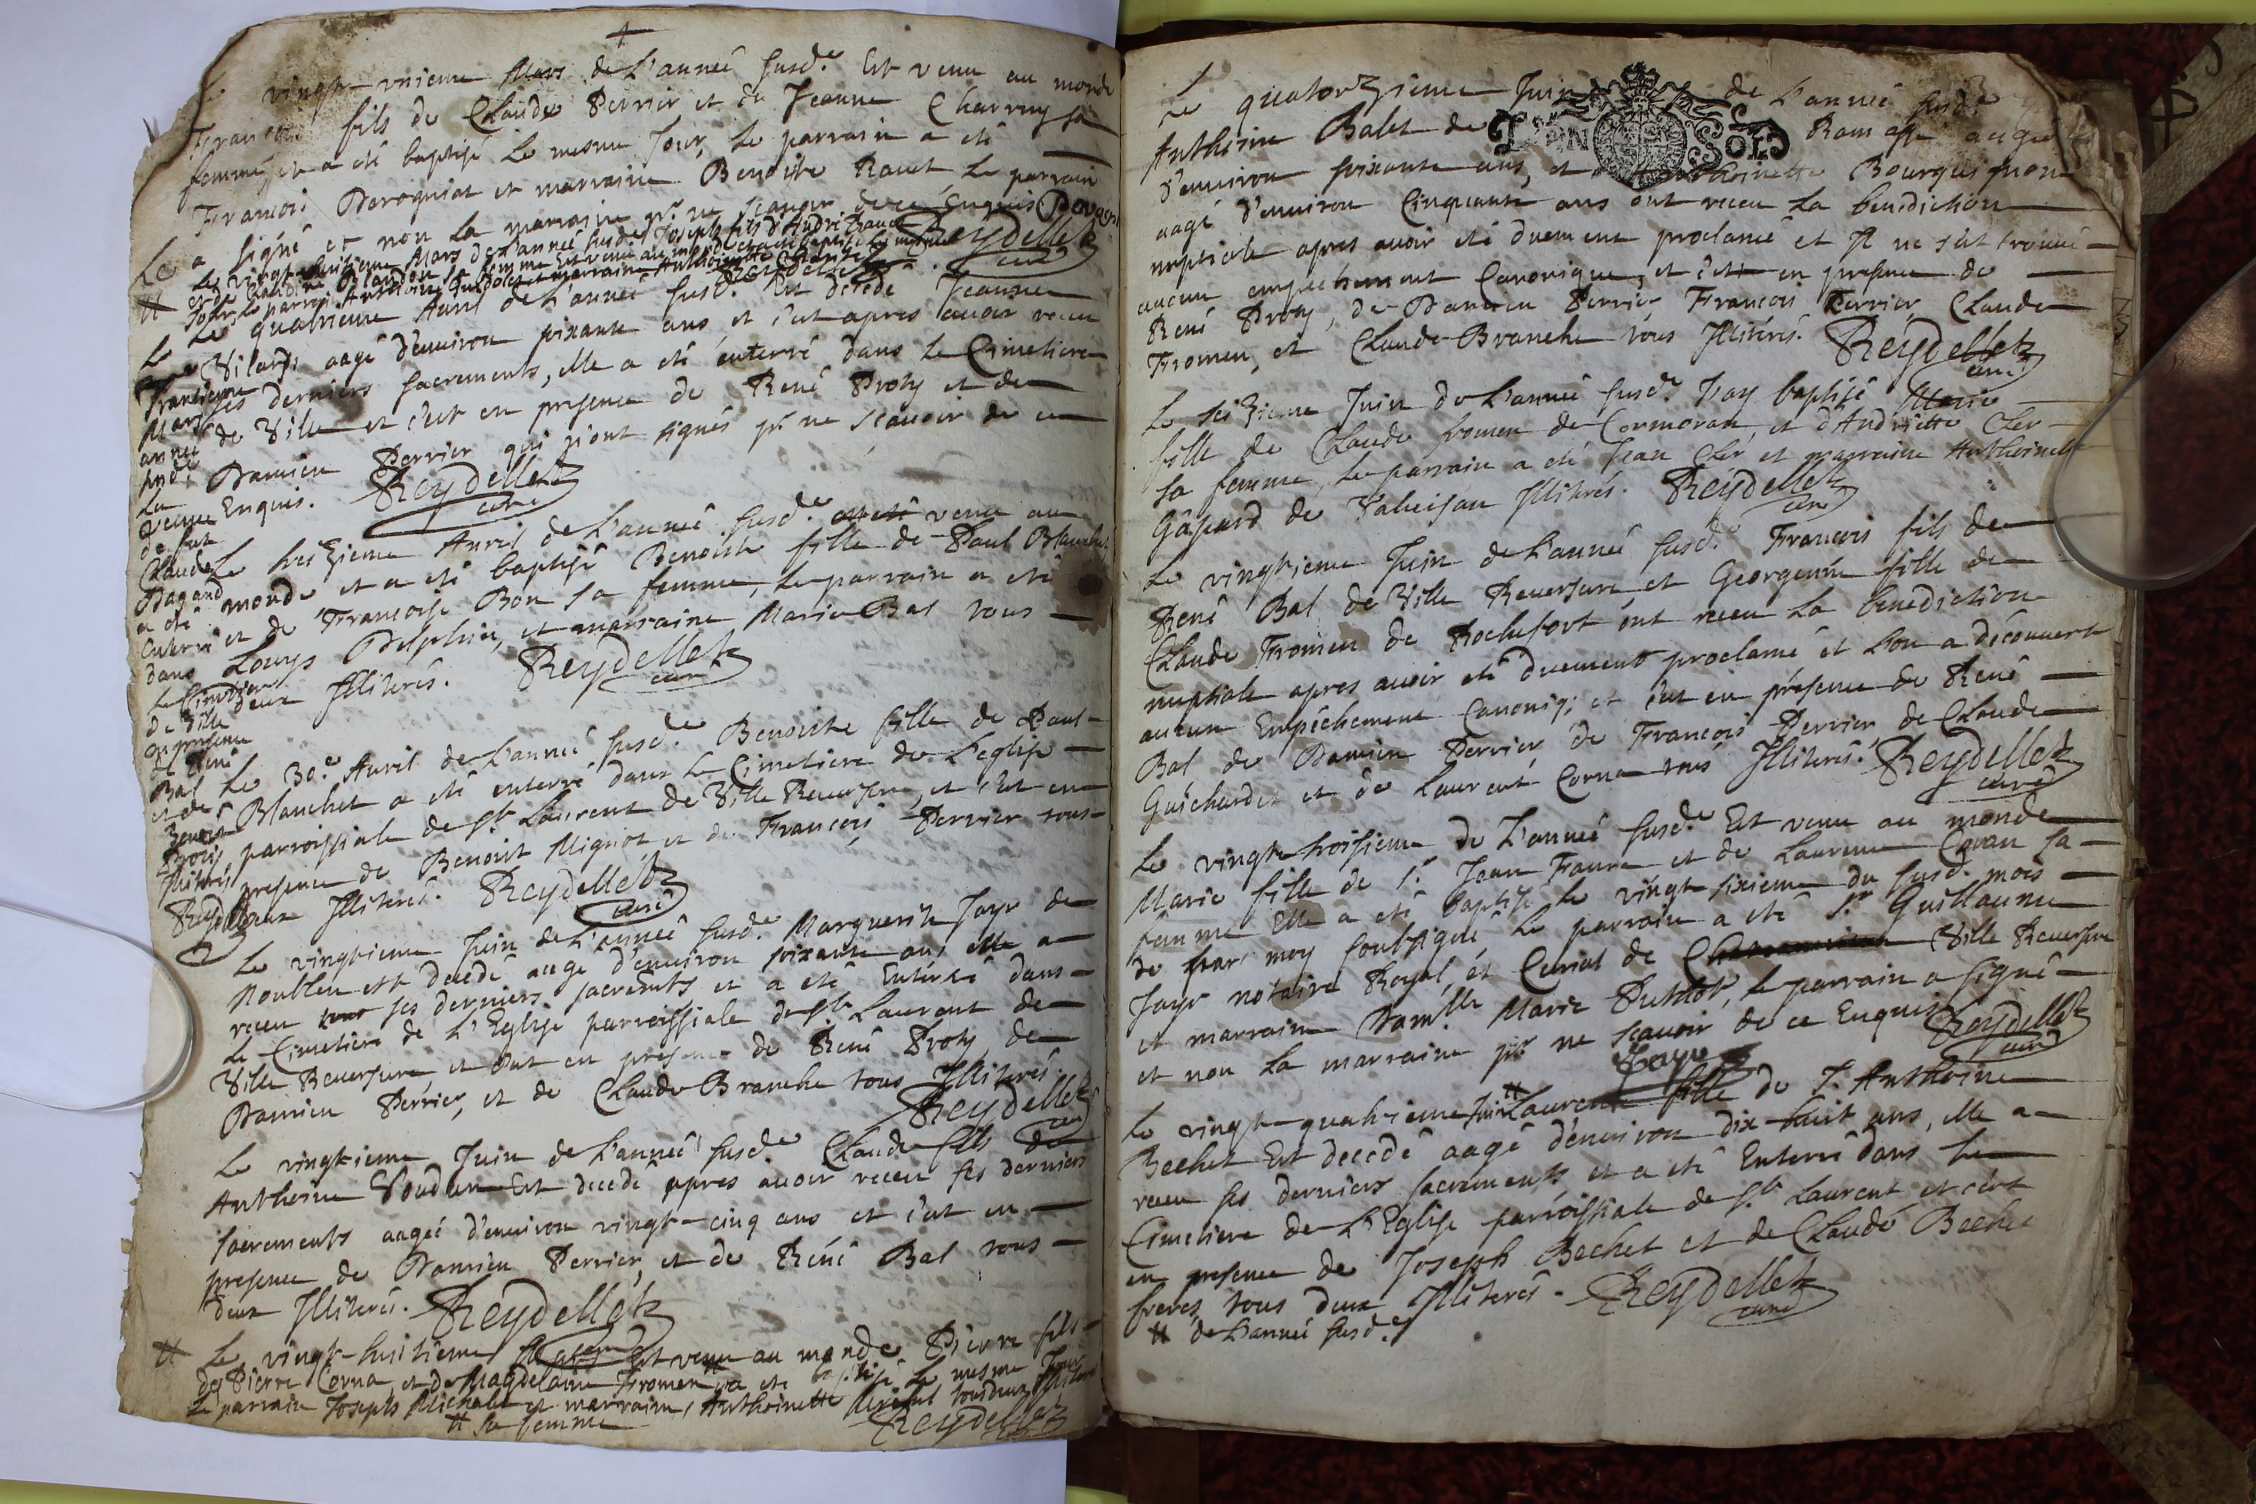 Le vingt-unieme Mars de L'année susd.e Est venu au monde
François fils de Claude Perrier et de Jeanne Charruy sa
femme, et a eté baptisé Le mesme Jour, Le parrain a eté
François Darognat et marraine Benoiste Ravet Le parrain
a signé et non La marraine pr. ne sçauoir de ce Enquis
Reydellet curé
Le vingt-huitieme Mars de L'année susd.e Joseph fils d'André
et de sa femme Est venu au monde et a eté baptisé Le mesme
Jour, Le parrain Anthoine et marraine Anthoinette
Reydellet
Le quatrieme Avril de L'année susd.e Est decedé Jeanne
Vilard, aagé d'environ soixante ans et c'est apres auoir receu
ses derniers sacrements, elle a eté enterré dans Le Cimetiere
de Ville et c'est en presence de René Proty et de
Damien Perrier qui n'ont signés pr. ne sçauoir de ce
Enquis. Reydellet curé
Le
trentieme
Mars
année
susd.e
La
veuue
de fut
Claude
Dagand
a eté
enterré
dans
Le Cimetiere
de Ville
en presence
de René
Bal
et de
Benoit
Proty
Illiterés
Reydellet
Le treizieme Avril de L'année susd.e venu au
monde et a eté baptisé Benoiste fille de Paul Blanchet
et de Françoise Bon sa femme, Le parrain a eté
Louys Delphin, et marraine Marie Bal tous
deux Illiterés. Reydellet curé
Le 30.e Avril de L'année susd.e Benoiste fille de Paul
Blanchet a eté enterré dans Le Cimetiere de L'eglise
parroissiale de St. Laurent de Ville Reuersure, et c'est en
presence de Benoist Mignot et de François Perrier tous
deux Illiterés. Reydellet curé
Le vingtieme Juin de L'année susd.e Marguerite Jayr de
Noublen est decedé aagé d'environ soixante ans elle a
receu ses derniers sacrements et a eté Enterré dans
Le Cimetiere de L'Eglise parroissiale de St. Laurent de
Ville Reuersure et c'est en presence de René Proty, de
Damien Perrier, et de Claude Branche tous Illiterés.
Reydellet curé
Le vingtieme Juin de L'année susd.e Claude fils de
Anthoine Est decedé apres auoir receu ses derniers
sacrements aagé d'environ vingt-cinq ans et c'est en
presence de Damien Perrier, et de René Bal tous
deux Illiterés. Reydellet
# Le vingt-huitieme Est venu au monde Pierre fils
de Pierre Corna, et de Magdelaine Fromen # a eté baptisé Le mesme Jour
Le parrain Joseph Michalet et marraine, Anthoinette tous deux Illiterés
# sa femme Reydellet
Le quatorzieme Juin de L'année susd.e
Anthoine Balet de Ramasse aagé
d'environ soixante ans, et Anthoinette Bourguignon
aagé d'environ Cinquante ans ont receu La benediction
nuptiale apres auoir eté duement proclamé et Il ne s'est trouué
aucun empechement Canonique, et c'est en presence de
René Proty, de Damien Perrier François Perrier, Claude
Fromen, et Claude Branche tous Illiterés. Reydellet curé
Le seizieme Juin de L'année susd.e J'ay baptisé Marie
fille de Claude fromen de Cormoran, et d'Andriette Cler
sa femme, Le parrain a eté Jean Cler et marraine Anthoinette
Gâpard de Illiterés. Reydellet curé
Le vingtieme Juin de L'année susd.e François fils de
René Bal de Ville Reuersure, et Georgette fille de
Claude Fromen de Rochefort ont receu La benediction
nuptiale apres auoir eté duement proclamé et L'on a découuert
aucun Empêchement Canoniq; et c'est en présence de René
Bal de Damien Perrier de François Perrier, de Claude
Guichardet et de Laurent Corna tous Illiterés. Reydellet curé
Le vingt-troisieme de L'année susd.e Est venu au monde
Marie fille de Sr. Jean Faure et de Laurence Cavan sa
femme Elle a eté baptisé Le vingt sixieme du susd. mois
de par moy soubsigné Le parrain a eté Sr. Guillaume
Jayr notaire Royal, et Curial de Ville Reuersure
et marraine Dam.lle Marie Puthod, Le parrain a signé
et non La marraine pr. ne sçauoir de ce Enquis. Reydellet curé
Jayr
Le vingt-quatrieme Juin # Laurence fille de Sr. Anthoine
Bechet Est decedé aagé d'environ dix-huit ans, elle a
receu ses derniers sacrements et a eté Enterré dans Le
Cimetiere de L'Eglise parroissiale de St. Laurent et c'est
en presence de Joseph Bechet et de Claude Bechet
freres tous deux Illiterés. Reydellet curé
# de L'année susd.e